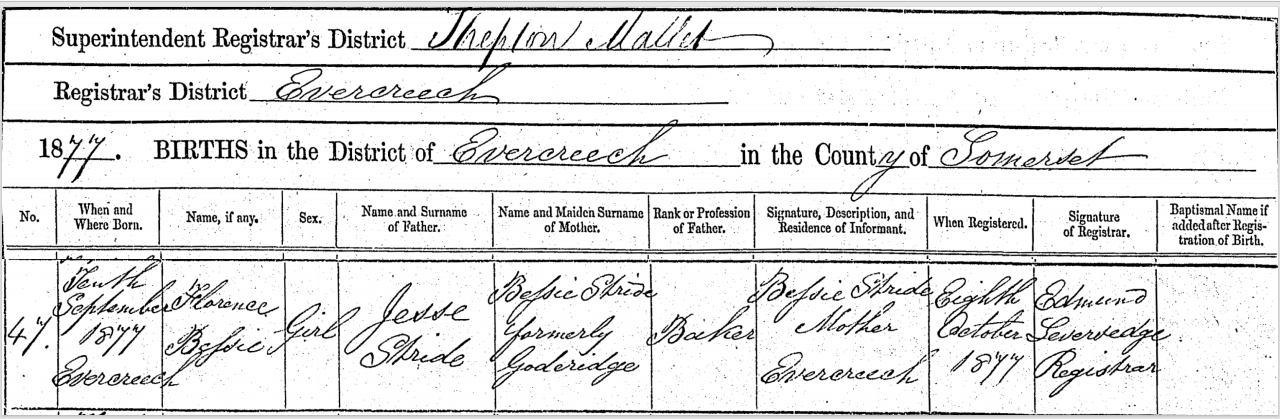 Superintendent Registrar's District Shepton Mallet
Registrar's District Evercreech
1877. BIRTHS in the District of Evercreech in the County of Somerset
No.
When and
Where Born.
Name, if any.
Sex.
Name and Surname
of Father.
Name and Maiden Surname
of Mother.
Rank or Profession
of Father.
Signature, Description, and
Residence of Informant.
When Registered.
Signature
of Registrar.
Baptismal Name if
added after Regis-
tration of Birth.
47.
Tenth
September
1877
Evercreech
Florence
Bessie
Girl
Jesse
Stride
Bessie Stride
formerly
Goderidge
Baker
Bessie Stride
Mother
Evercreech
Eighth
October
1877
Edmund
Leversedge
Registrar